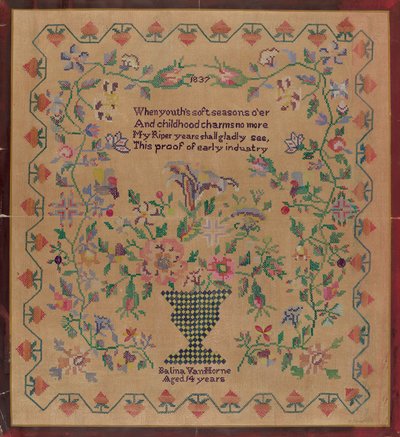 1837
When youth's soft seasons o'er
And childhood charms no more
My Riper years shall gladly see,
This proof of early industry
Salina Van Horne
Aged 14 years